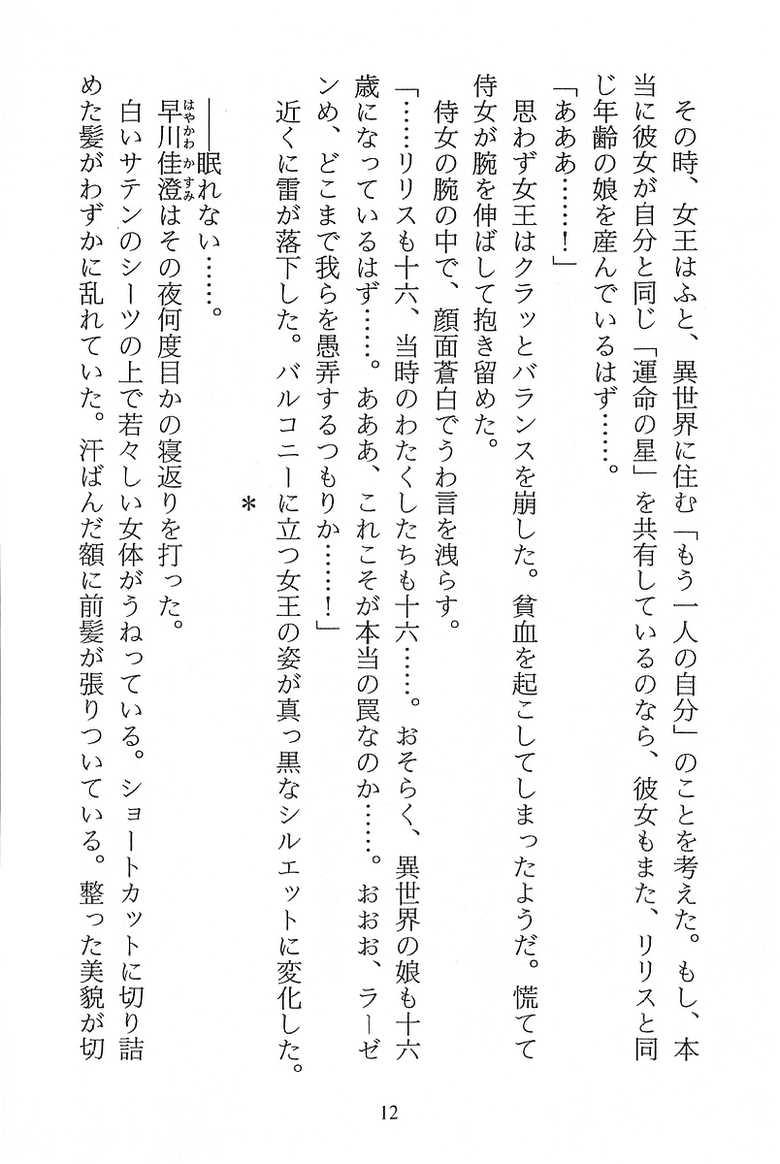 その時、女王はふと、異世界に住む「もう一人の自分」のことを考えた。もし、本
当に彼女が自分と同じ「運命の星」を共有しているのなら、彼女もまた、リリスと同
じ年齢の娘を産んでいるはず……。
「あああ……！」
思わず女王はクラッとバランスを崩した。貧血を起こしてしまったようだ。慌てて
侍女が腕を伸ばして抱き留めた。
侍女の腕の中で、顔面蒼白でうわ言を洩らす。
「……リリスも十六、当時のわたくしたちも十六……。おそらく、異世界の娘も十六
歳になっているはず……。あああ、これこそが本当の罠なのか……。おおお、ラーゼ
ンめ、どこまで我らを愚弄するつもりか……！」
近くに雷が落下した。バルコニーに立つ女王の姿が真っ黒なシルエットに変化した。
＊
――眠れない……。
早川佳澄はその夜何度目かの寝返りを打った。
はやかわ か すみ
白いサテンのシーツの上で若々しい女体がうねっている。ショートカットに切り詰
めた髪がわずかに乱れていた。汗ばんだ額に前髪が張りついている。整った美貌が切
12